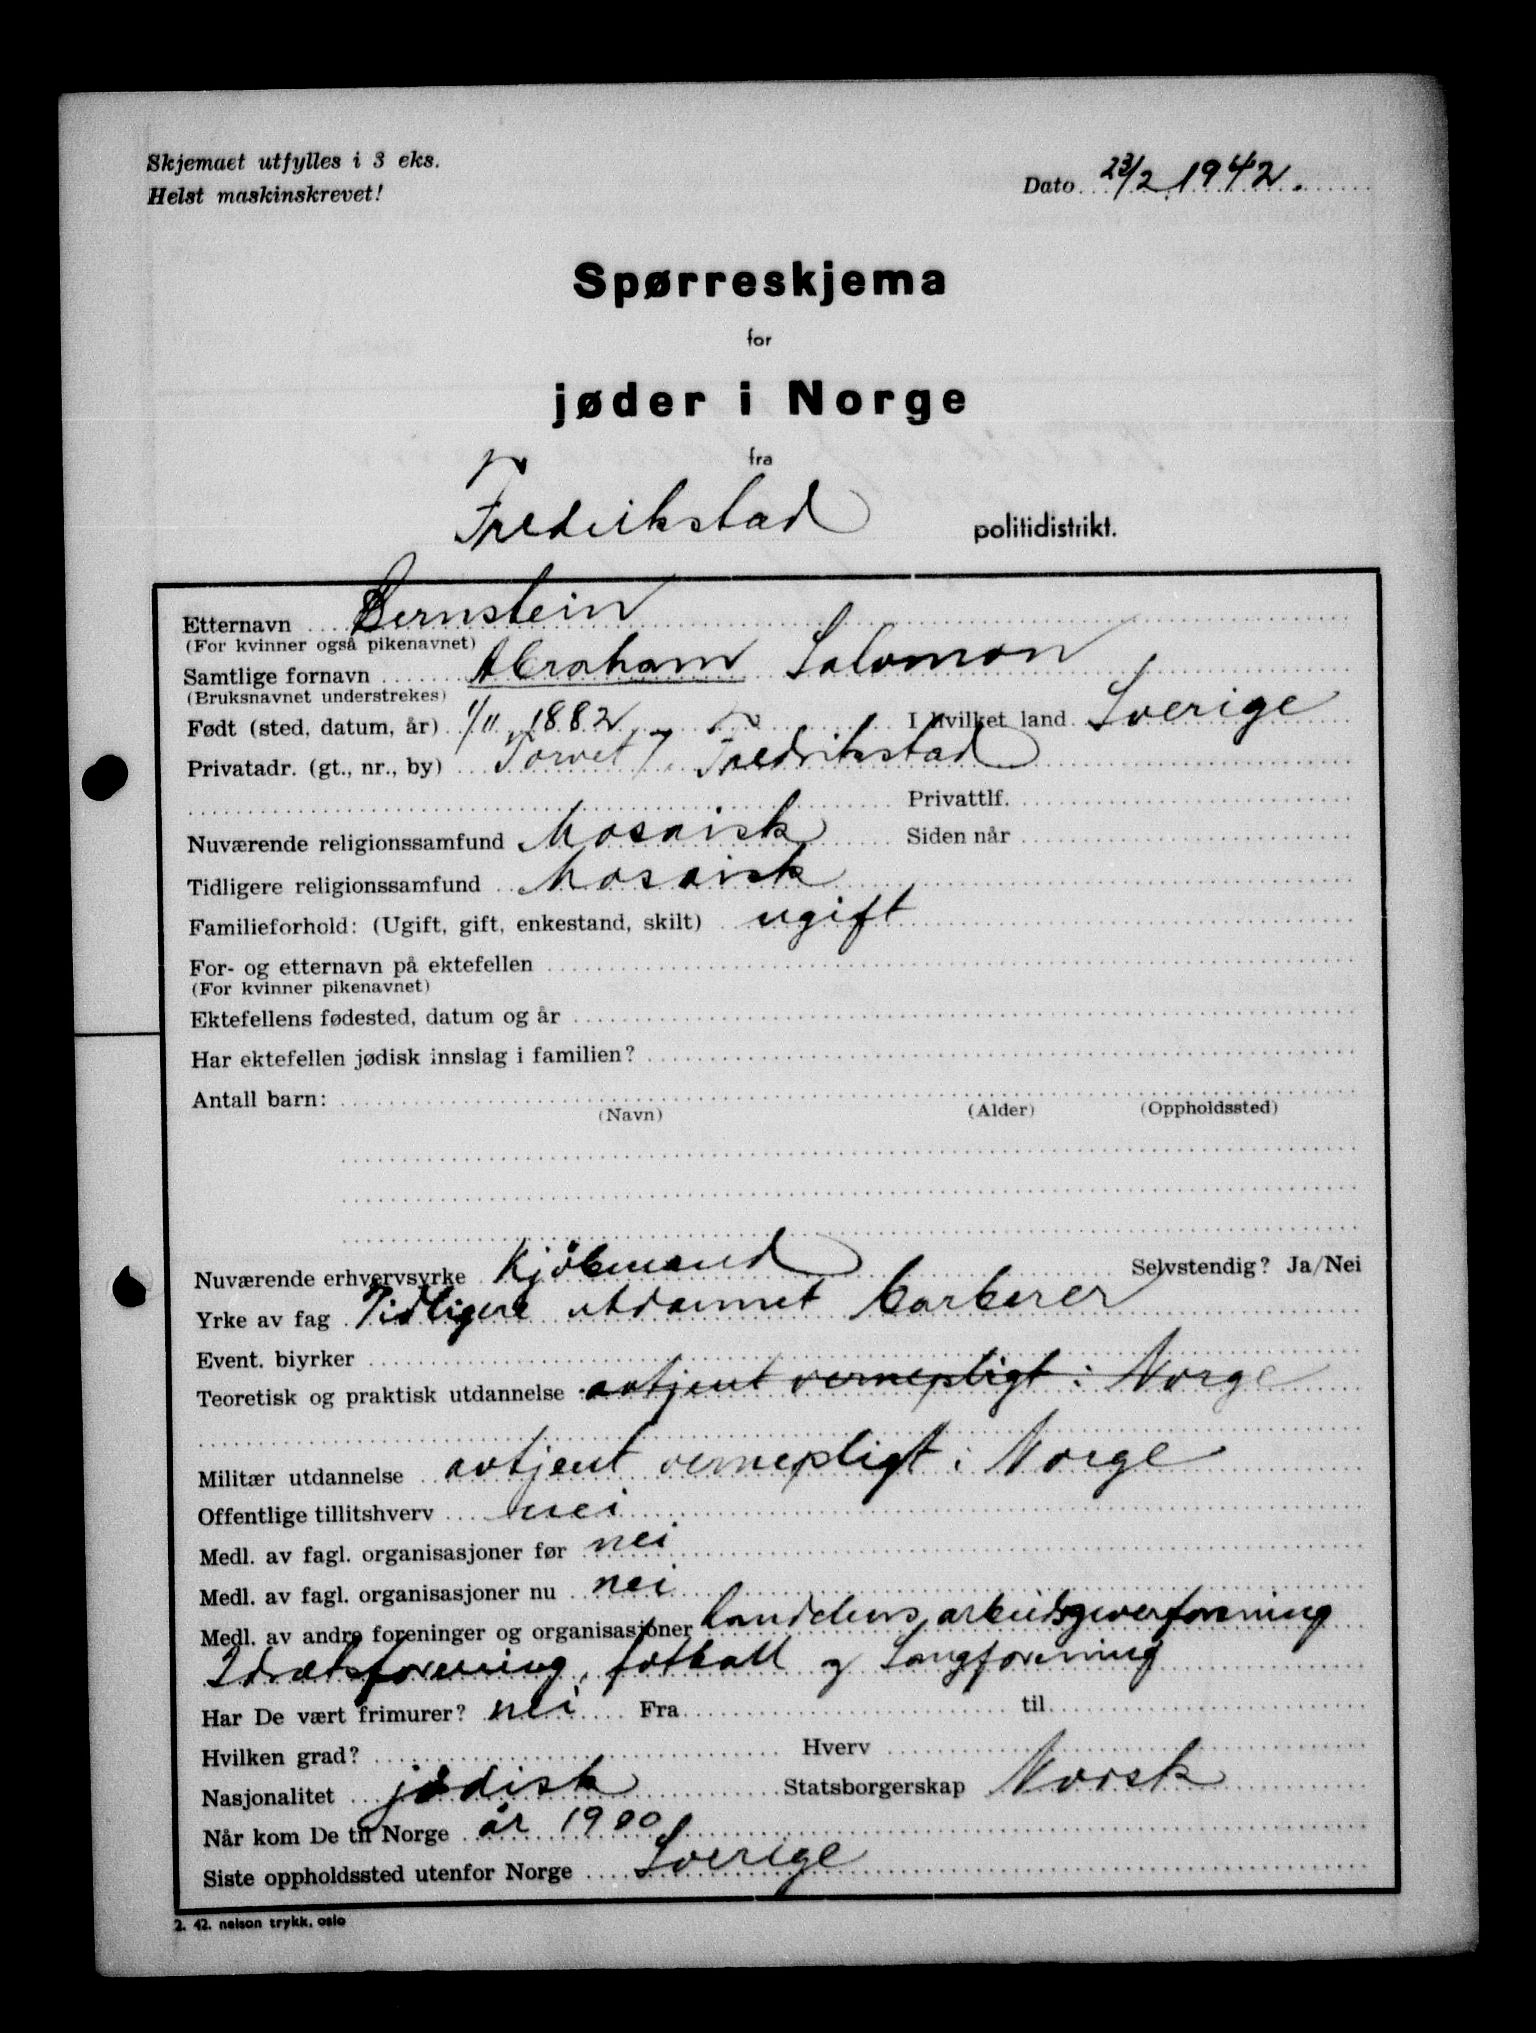 Skjemaet utfylles i 3 eks.
Helst maskinskrevet!
Dato 23/2 1942.
Spørreskjema
for
jøder i Norge
fra
Fredrikstad politidistrikt.
Etternavn Bernstein
(For kvinner også pikenavnet)
Samtlige fornavn Abraham Salomon
(Bruksnavnet understrekes)
Født (sted, datum, år) 1/11 1882 I hvilket land Sverige
Privatadr. (gt., nr., by) Torvet 7, Fredrikstad
Privattlf.
Nuværende religionssamfund Mosaisk Siden når
Tidligere religionssamfund Mosaisk
Familieforhold: (Ugift, gift, enkestand, skilt) ugift
For- og etternavn på ektefellen
(For kvinner pikenavnet)
Ektefellens fødested, datum og år
Har ektefellen jødisk innslag i familien?
Antall barn:
(Navn) (Alder) (Oppholdssted)
Nuværende erhvervsyrke Kjöbmand Selvstendig? Ja/Nei
Yrke av fag Tidligere utdannet barberer
Event. biyrker
Teoretisk og praktisk utdannelse avtjent vernepligt i Norge
Militær utdannelse avtjent vernepligt i Norge
Offentlige tillitshverv nei
Medl. av fagl. organisasjoner før nei
Medl. av fagl. organisasjoner nu nei
Medl. av andre foreninger og organisasjoner arbeidsgiverforening
Idrætsforening, fotball og Sangforening
Har De vært frimurer? nei Fra til
Hvilken grad? Hverv
Nasjonalitet jødisk Statsborgerskap Norsk
Når kom De til Norge år 1900
Siste oppholdssted utenfor Norge Sverige
2. 42. nelson trykk, oslo